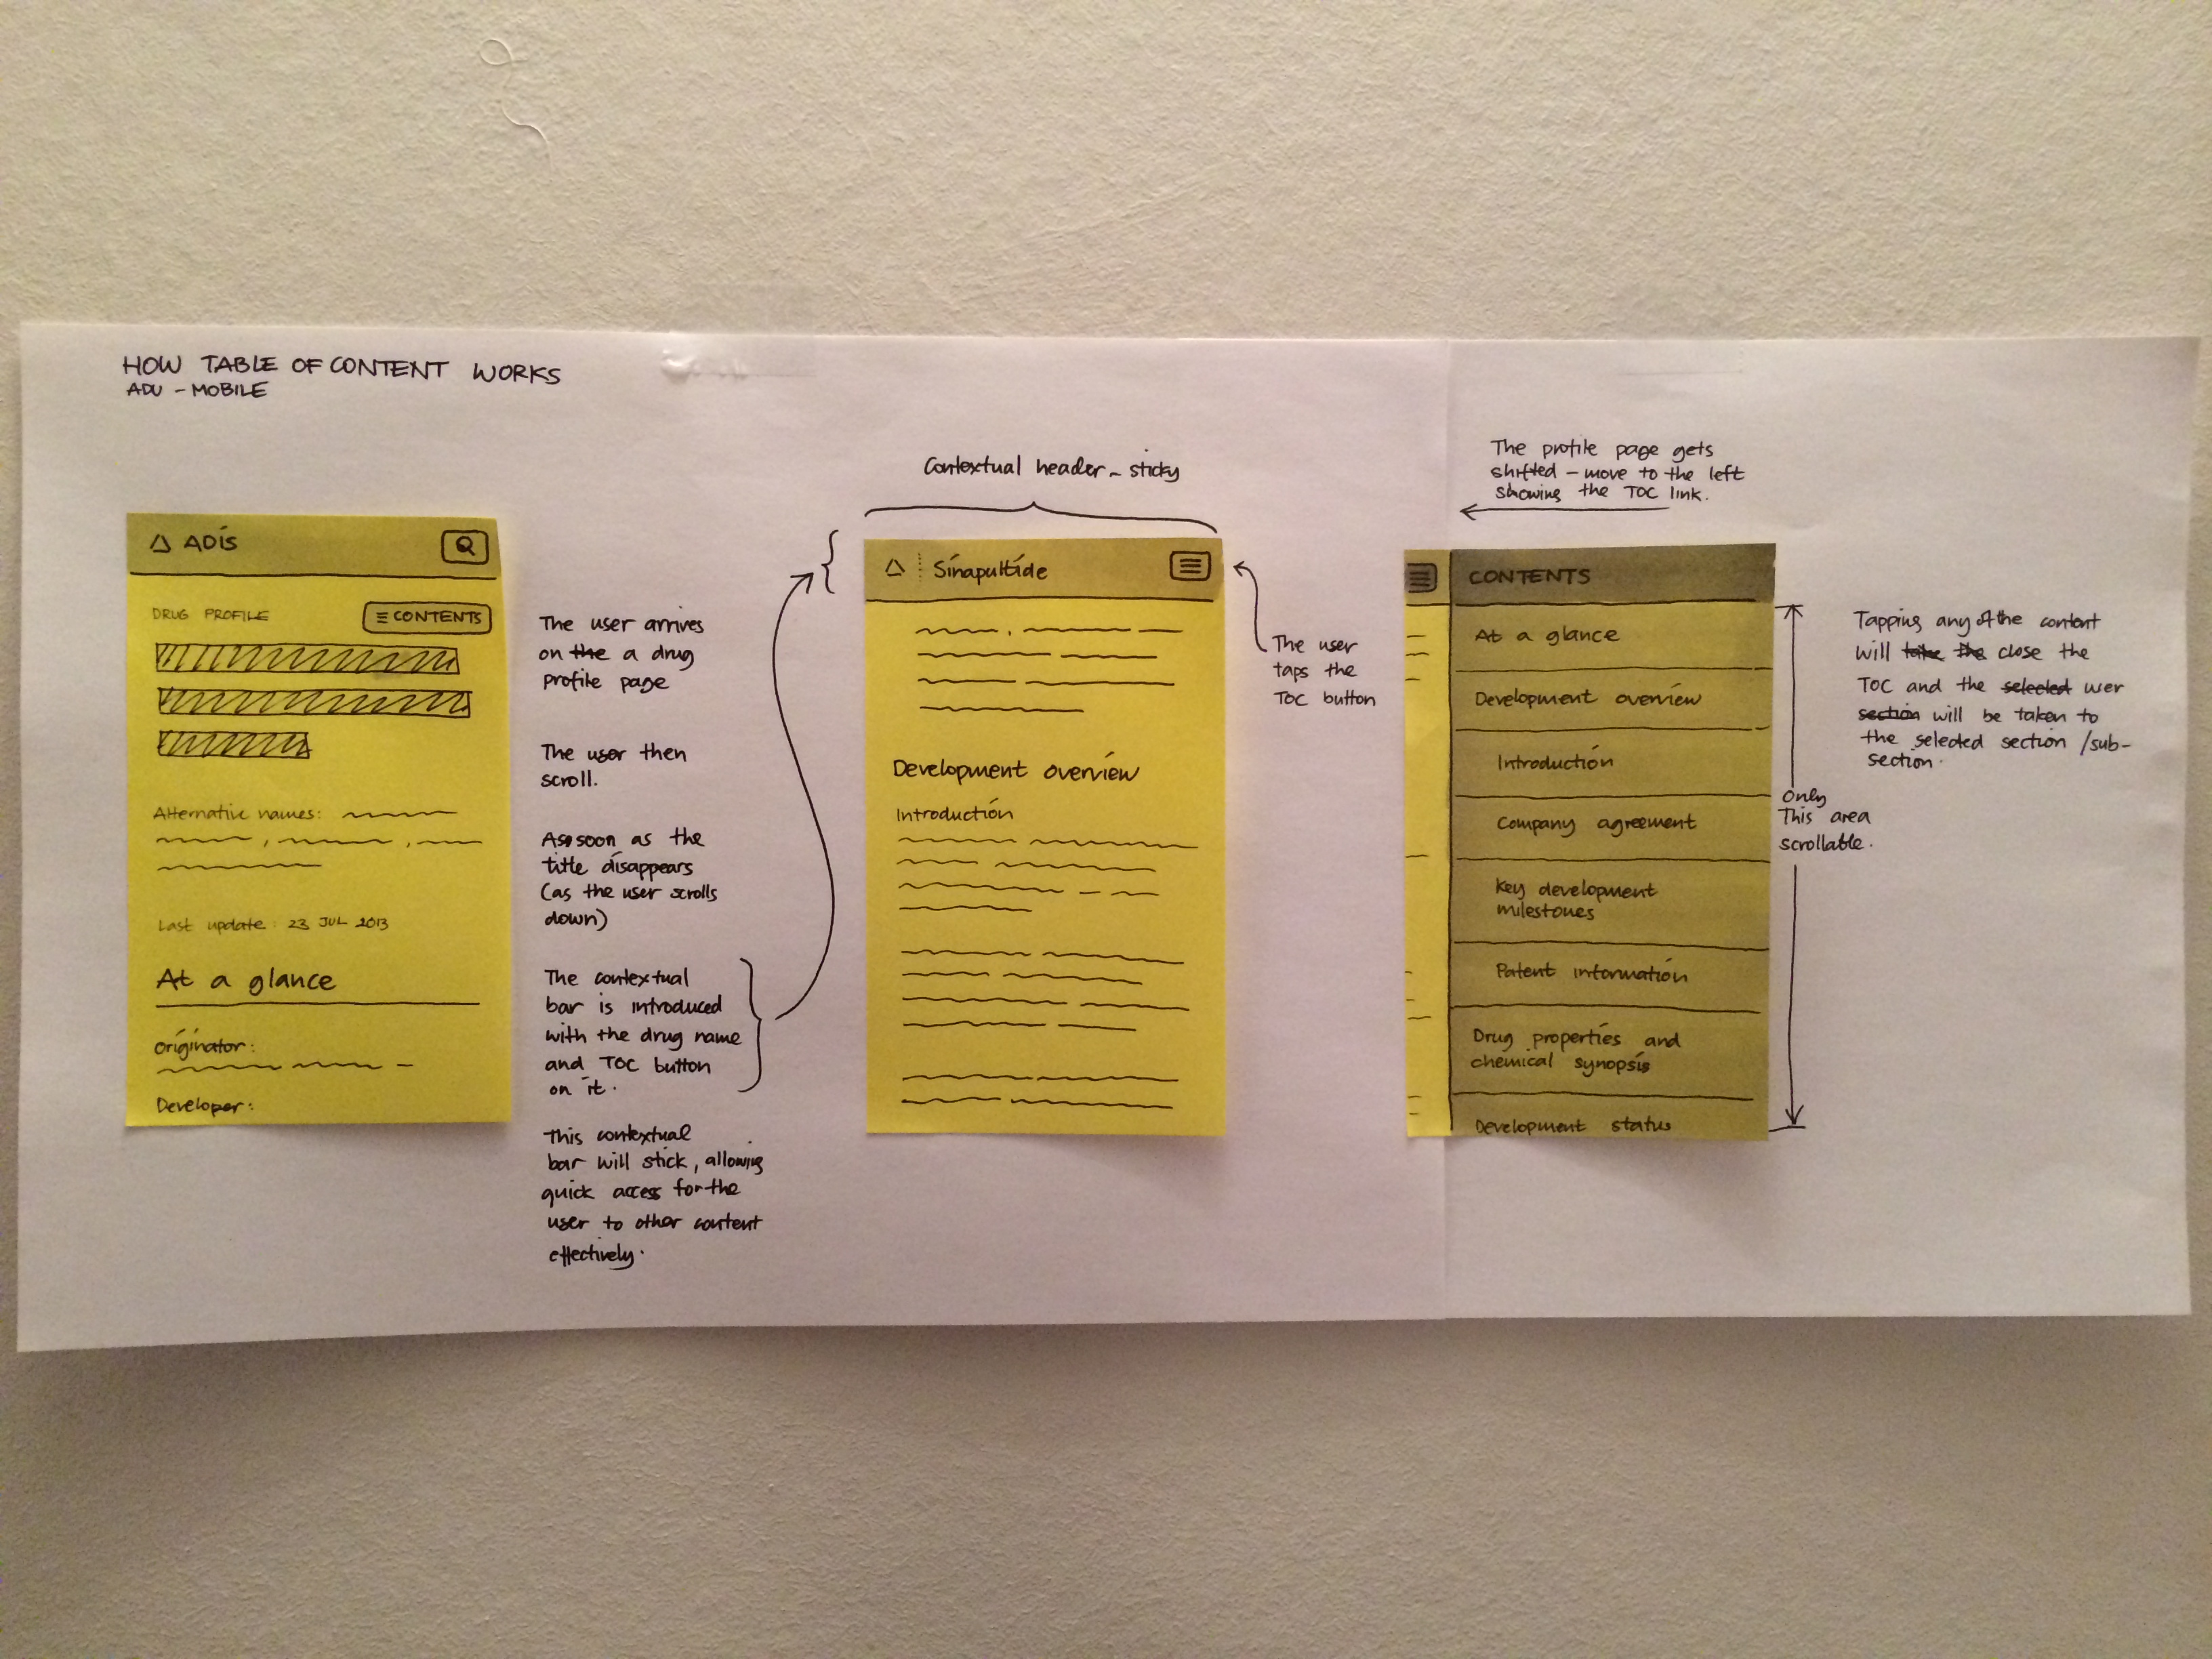 HOW TABLE OF CONTENT WORKS
ADU - MOBILE
ADIS
DRUG PROFILE
CONTENTS
Alternative names:
Last update: 23 JUL 2013
At a glance
Originator:
Developer:
The user arrives
on the a drug
profile page
The user then
scroll.
As soon as the
title disappears
(as the user scrolls
down)
The contextual
bar is introduced
with the drug name
and TOC button
on it.
This contextual
bar will stick, allowing
quick access for the
user to other content
effectively.
Contextual header - sticky
Sinapultide
Development overview
Introduction
The user
taps the
TOC button
The profile page gets
shifted - move to the left
showing the TOC link.
CONTENTS
At a glance
Development overview
Introduction
Company agreement
Key development
milestones
Patent information
Drug properties and
chemical synopsis
Development status
Only
This area
scrollable.
Tapping any of the content
will take the close the
TOC and the selected user
section will be taken to
the selected section /sub-
section.